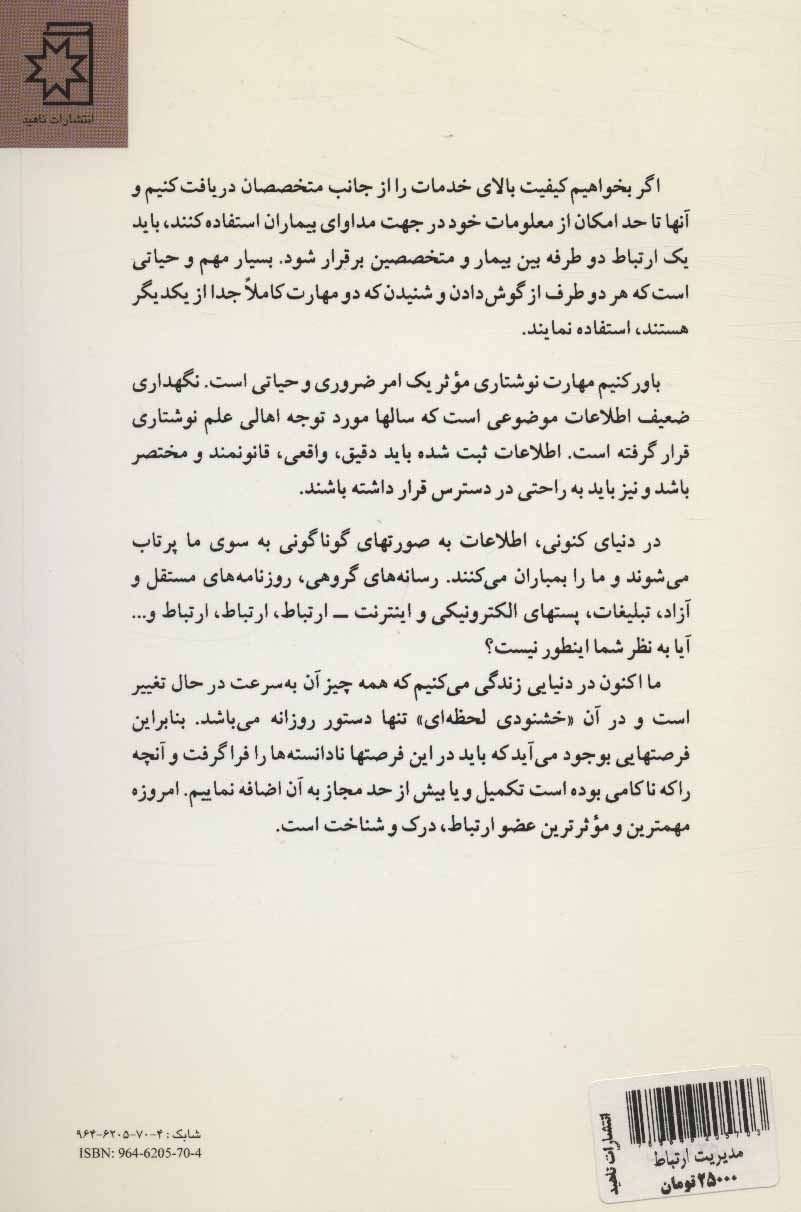 انتشارات ناهید
اگر بخواهیم کیفیت بالای خدمات را از جانب متخصصان دریافت کنیم و
آنها تا حد امکان از معلومات خود در جهت مداوای بیماران استفاده کنند، باید
یک ارتباط دو طرفه بین بیمار و متخصصین برقرار شود. بسیار مهم و حیاتی
است که هر دو طرف از گوش دادن و شنیدن که دو مهارت کاملاً جدا از یکدیگر
هستند، استفاده نمایند.
باور کنیم مهارت نوشتاری مؤثر یک امر ضروری و حیاتی است. نگهداری
ضعیف اطلاعات موضوعی است که سالها مورد توجه اهالی علم نوشتاری
قرار گرفته است. اطلاعات ثبت شده باید دقیق، واقعی، قانونمند و مختصر
باشد و نیز باید به راحتی در دسترس قرار داشته باشند.
در دنیای کنونی، اطلاعات به صورتهای گوناگونی به سوی ما پرتاب
می‌شوند و ما را بمباران می‌کنند. رسانه‌های گروهی، روزنامه‌های مستقل و
آزاد، تبلیغات، پستهای الکترونیکی و اینترنت ــ ارتباط، ارتباط، ارتباط و...
آیا به نظر شما اینطور نیست؟
ما اکنون در دنیایی زندگی می‌کنیم که همه چیز آن به‌سرعت در حال تغییر
است و در آن «خشنودی لحظه‌ای» تنها دستور روزانه می‌باشد. بنابراین
فرصتهایی بوجود می‌آید که باید در این فرصتها نادانسته‌ها را فرا گرفت و آنچه
را که ناکامی بوده است تکمیل و یا بیش از حد مجاز به آن اضافه نماییم. امروزه
مهمترین و مؤثرترین عضو ارتباط، درک و شناخت است.
شابک: ۴-۷۰-۶۲۰۵-۹۶۴
ISBN: 964-6205-70-4
انتشارات ناهید
مدیریت ارتباط
۲۵۰۰۰ تومان